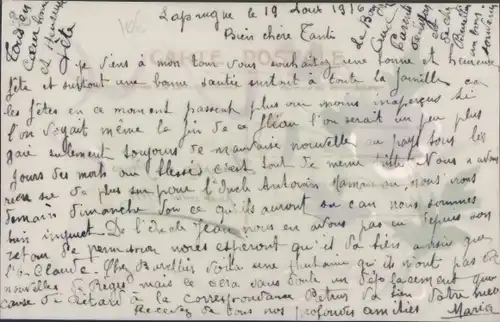 Laprugne le 19 Août 1916
Bien chère Tante
Je viens à mon tour vous souhaiter une bonne et heureuse
fête et surtout une bonne santée surtout à toute la famille car
les fêtes en ce moment passent plus ou moins inaperçus si
l'on voyait même la fin de ce fléau l'on serait un peu plus
gaie seulement toujours de mauvaise nouvelle au pays tous les
jours des morts ou blessé c'est tout de même Nous n'avons
rien su de plus sur l'Oncle Antonin Maman nous
demain dimanche voir ce qu'ils auront su car nous sommes
bien inquiet De l'Oncle Jean nous en avons pas eu depuis son
retour de permission nous espéront qu'il va bien ainsi que
l'on Claude. Chez voila une qu'il n'ont pas de
nouvelles de mais ce sera sans doute un déplacement qui
cause du retard à la correspondance va bien Votre nièce
Recevez de tous nos profondes amitiés Maria
Tonton
Cœur
et Heureuse
Fête
un bon
souvenir
CARTE POSTALE